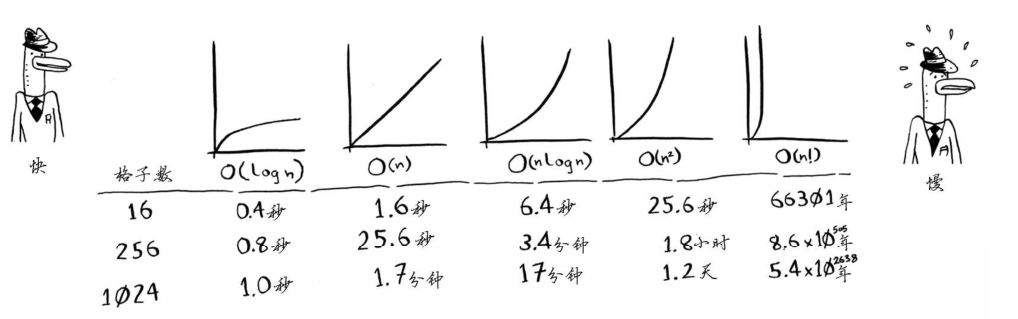 快
慢
格子数 O(logn) O(n) O(nlogn) O(n²) O(n!)
16 0.4秒 1.6秒 6.4秒 25.6秒 66301年
256 0.8秒 25.6秒 3.4分钟 1.8小时 8.6x10⁵⁰⁵年
1024 1.0秒 1.7分钟 17分钟 1.2天 5.4x10²⁶³⁸年